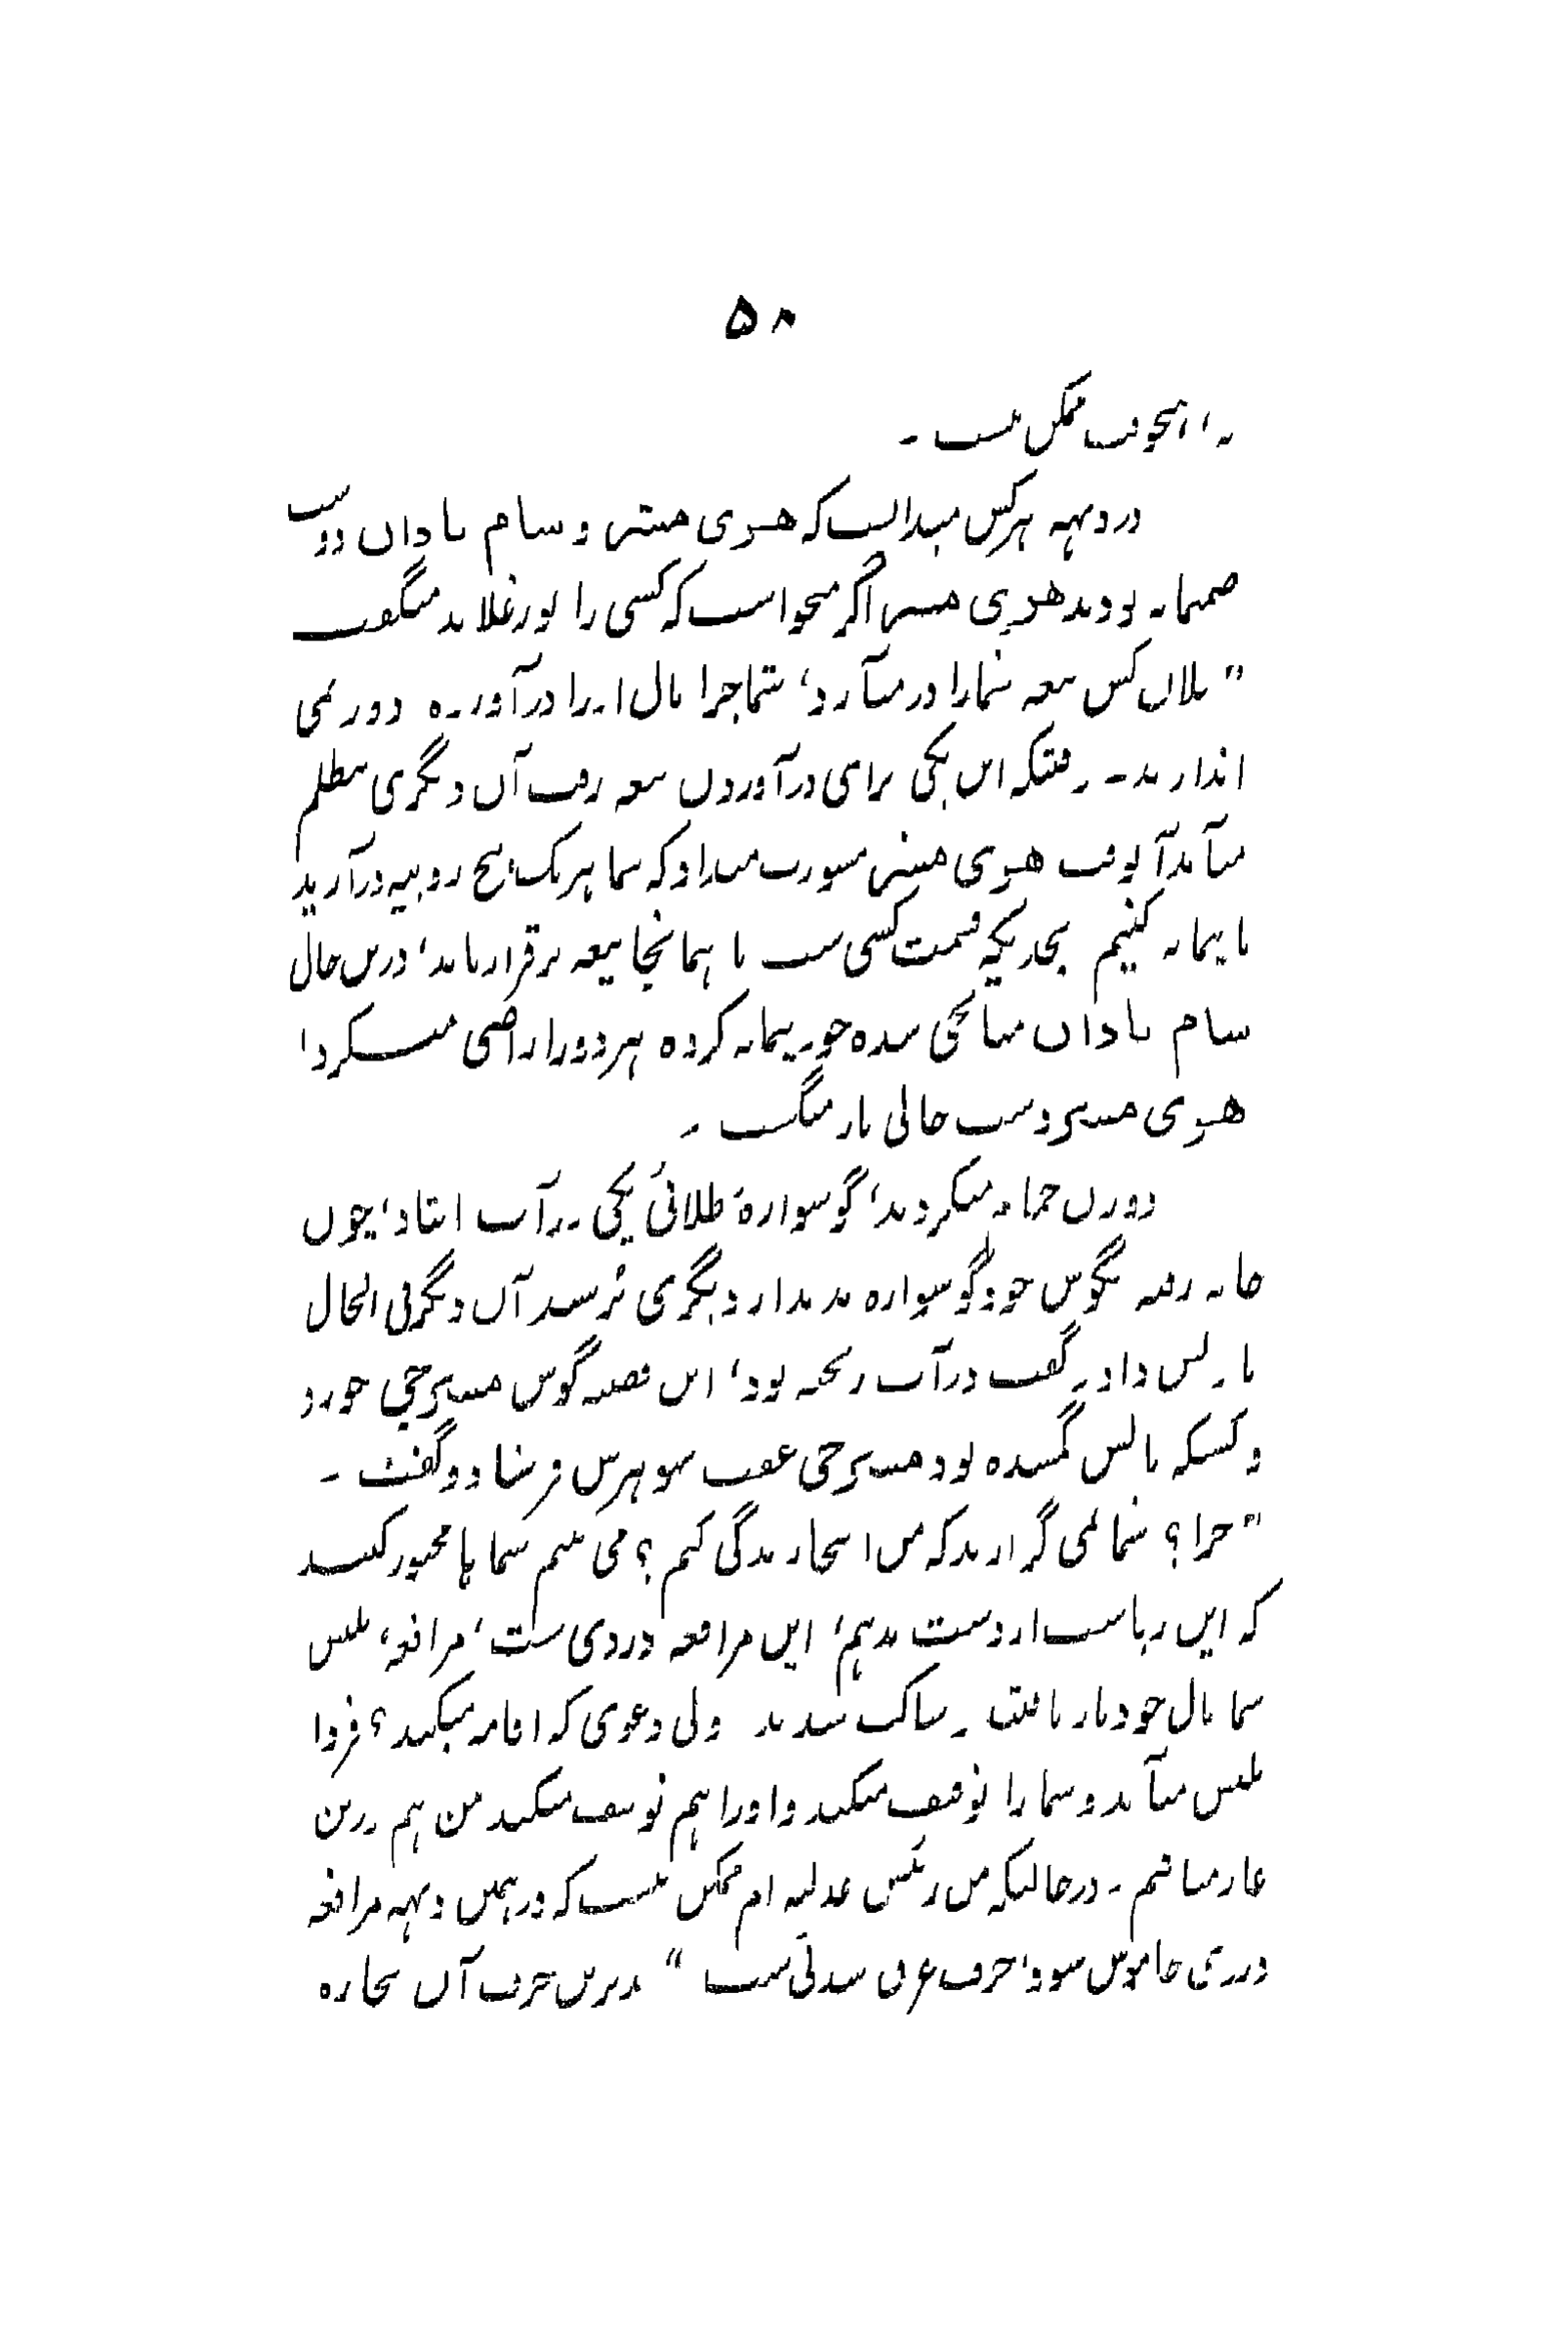 ۵۸
ممکن نیست ۔
در دیهه هرکس میدانست که هری مستر و سام نادان دوست
صمیمانه بودند هری مستر اگر میخواست که کسی را بورغلاند میگفت
" فلان کس بیعه شمارا در میآرد، شما چرا مال اورا در آورده دور نمی
اندازید ۔ وقتیکه این یکی برای درآوردن بیعه رفت آن دیگری بتظلم
میآمد آنوقت هری مستر مشورت میداد که شما هریک پنج روپیه در آرید
تا پیمانه کنیم بحدیکه قسمت کسی ست تا همانجا بیعه برقرار ماند، درین حال
سام نادان میانجی شده خود پیمانه کرده هر دورا راضی میکرد
هری مستر دست خالی باز میگشت ۔
دو زن حمام میکردند، گوشوارهٔ طلائی یکی در آب افتاد، چون
خانه رفته بگوش خود گوشواره ندید از دیگری پرسید آن دیگر فی الحال
باز پس داد و گفت در آب ریخته بود، این قصه گوش مسترجی خورد
و کسیکه مالش گمشده بود مسترجی عقب شوهرش فرستاد و گفت ۔
" چرا؟ شما نمی گذارید که من اینجا زندگی کنم؟ می بینم شما ها مجبور کنید
که این ریاست از دست بدهم، این مرافعه دزدی ست، مرافعه، پلیس
شما مال خود باز یافته ساکت شدید ولی دعوی که اقامه میکند؟ فردا
پلیس میآید و شمارا توقیف میکند و اورا هم توقیف میکند من هم درین
غار میافتم ۔ در حالیکه من رئیس عدلیه ام ممکن نیست که در همین دیهه مرافعه
دزدی خاموش شود، حرف غرق شدنی ست " بدین حرف آن بیچاره